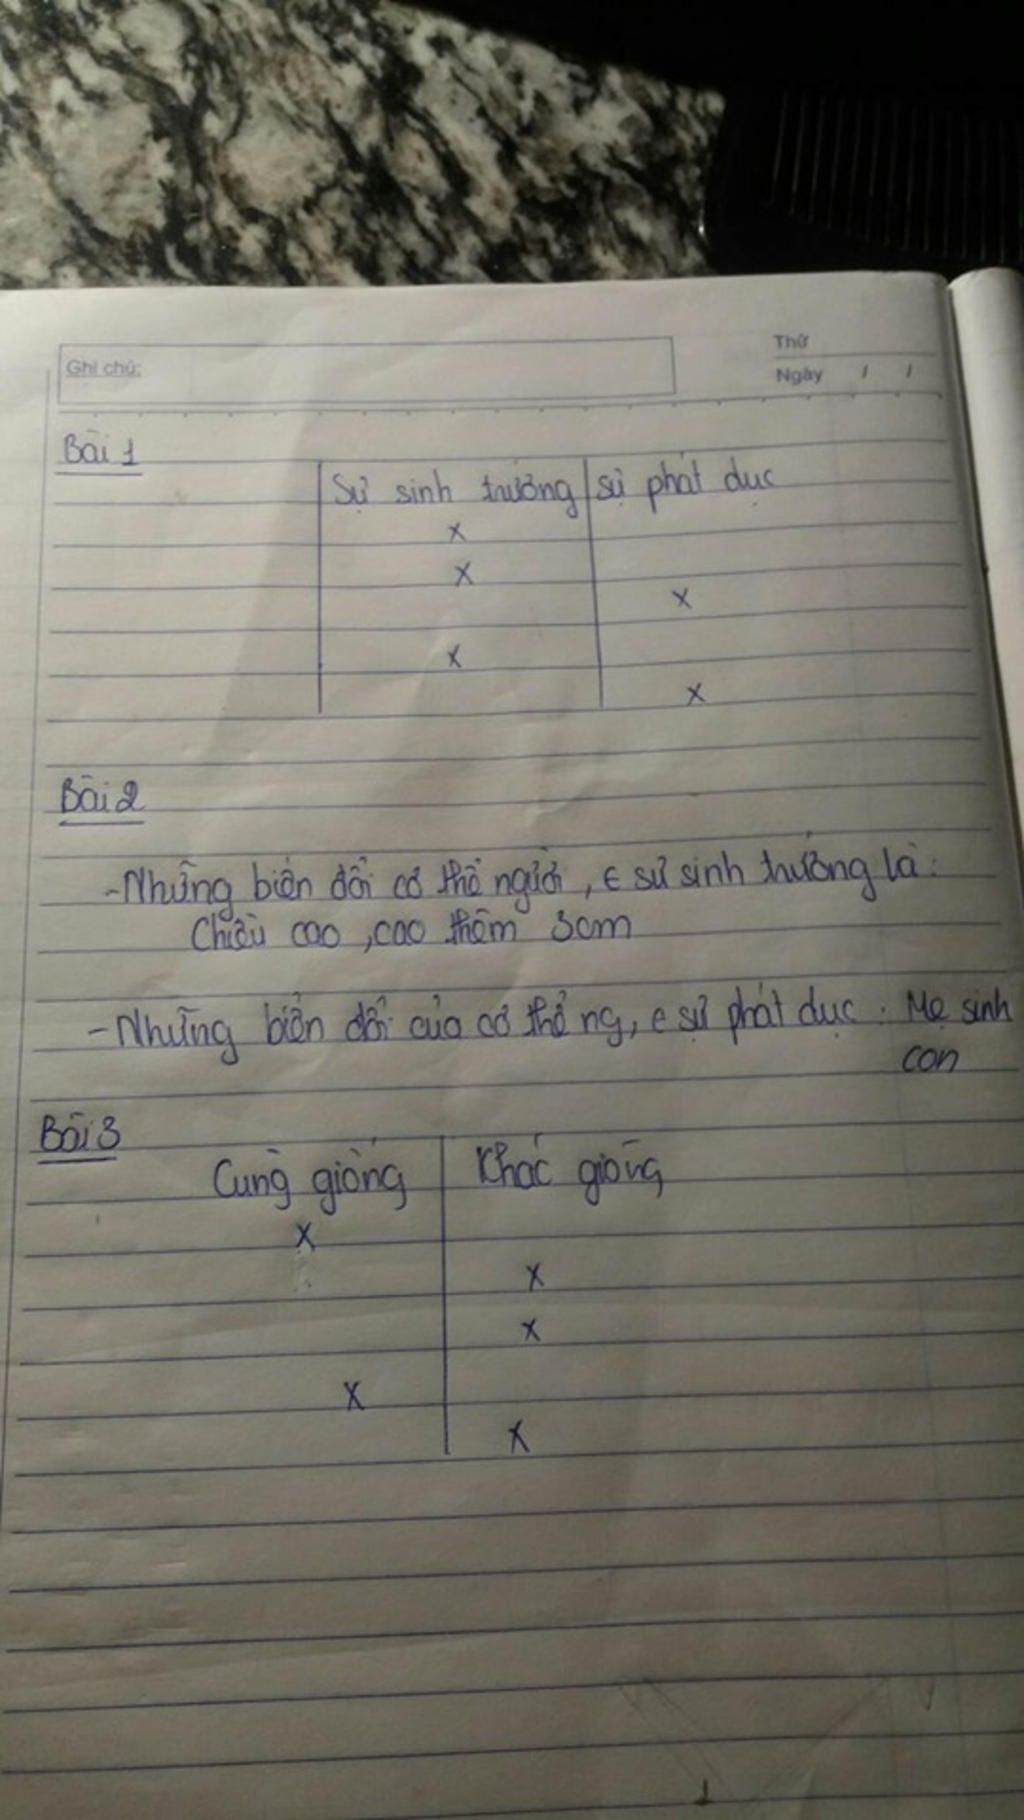 Ghi chú:
Thứ
Ngày / /
Bài 1
Sự sinh trưởng | sự phát dục
x
x
x
x
x
Bài 2
- Những biến đổi cơ thể người, ∈ sự sinh trưởng là:
Chiều cao, cao thêm 3cm
- Những biến đổi của cơ thể ng, ∈ sự phát dục: Mẹ sinh
con
Bài 3
Cùng giống | Khác giống
x
x
x
x
x